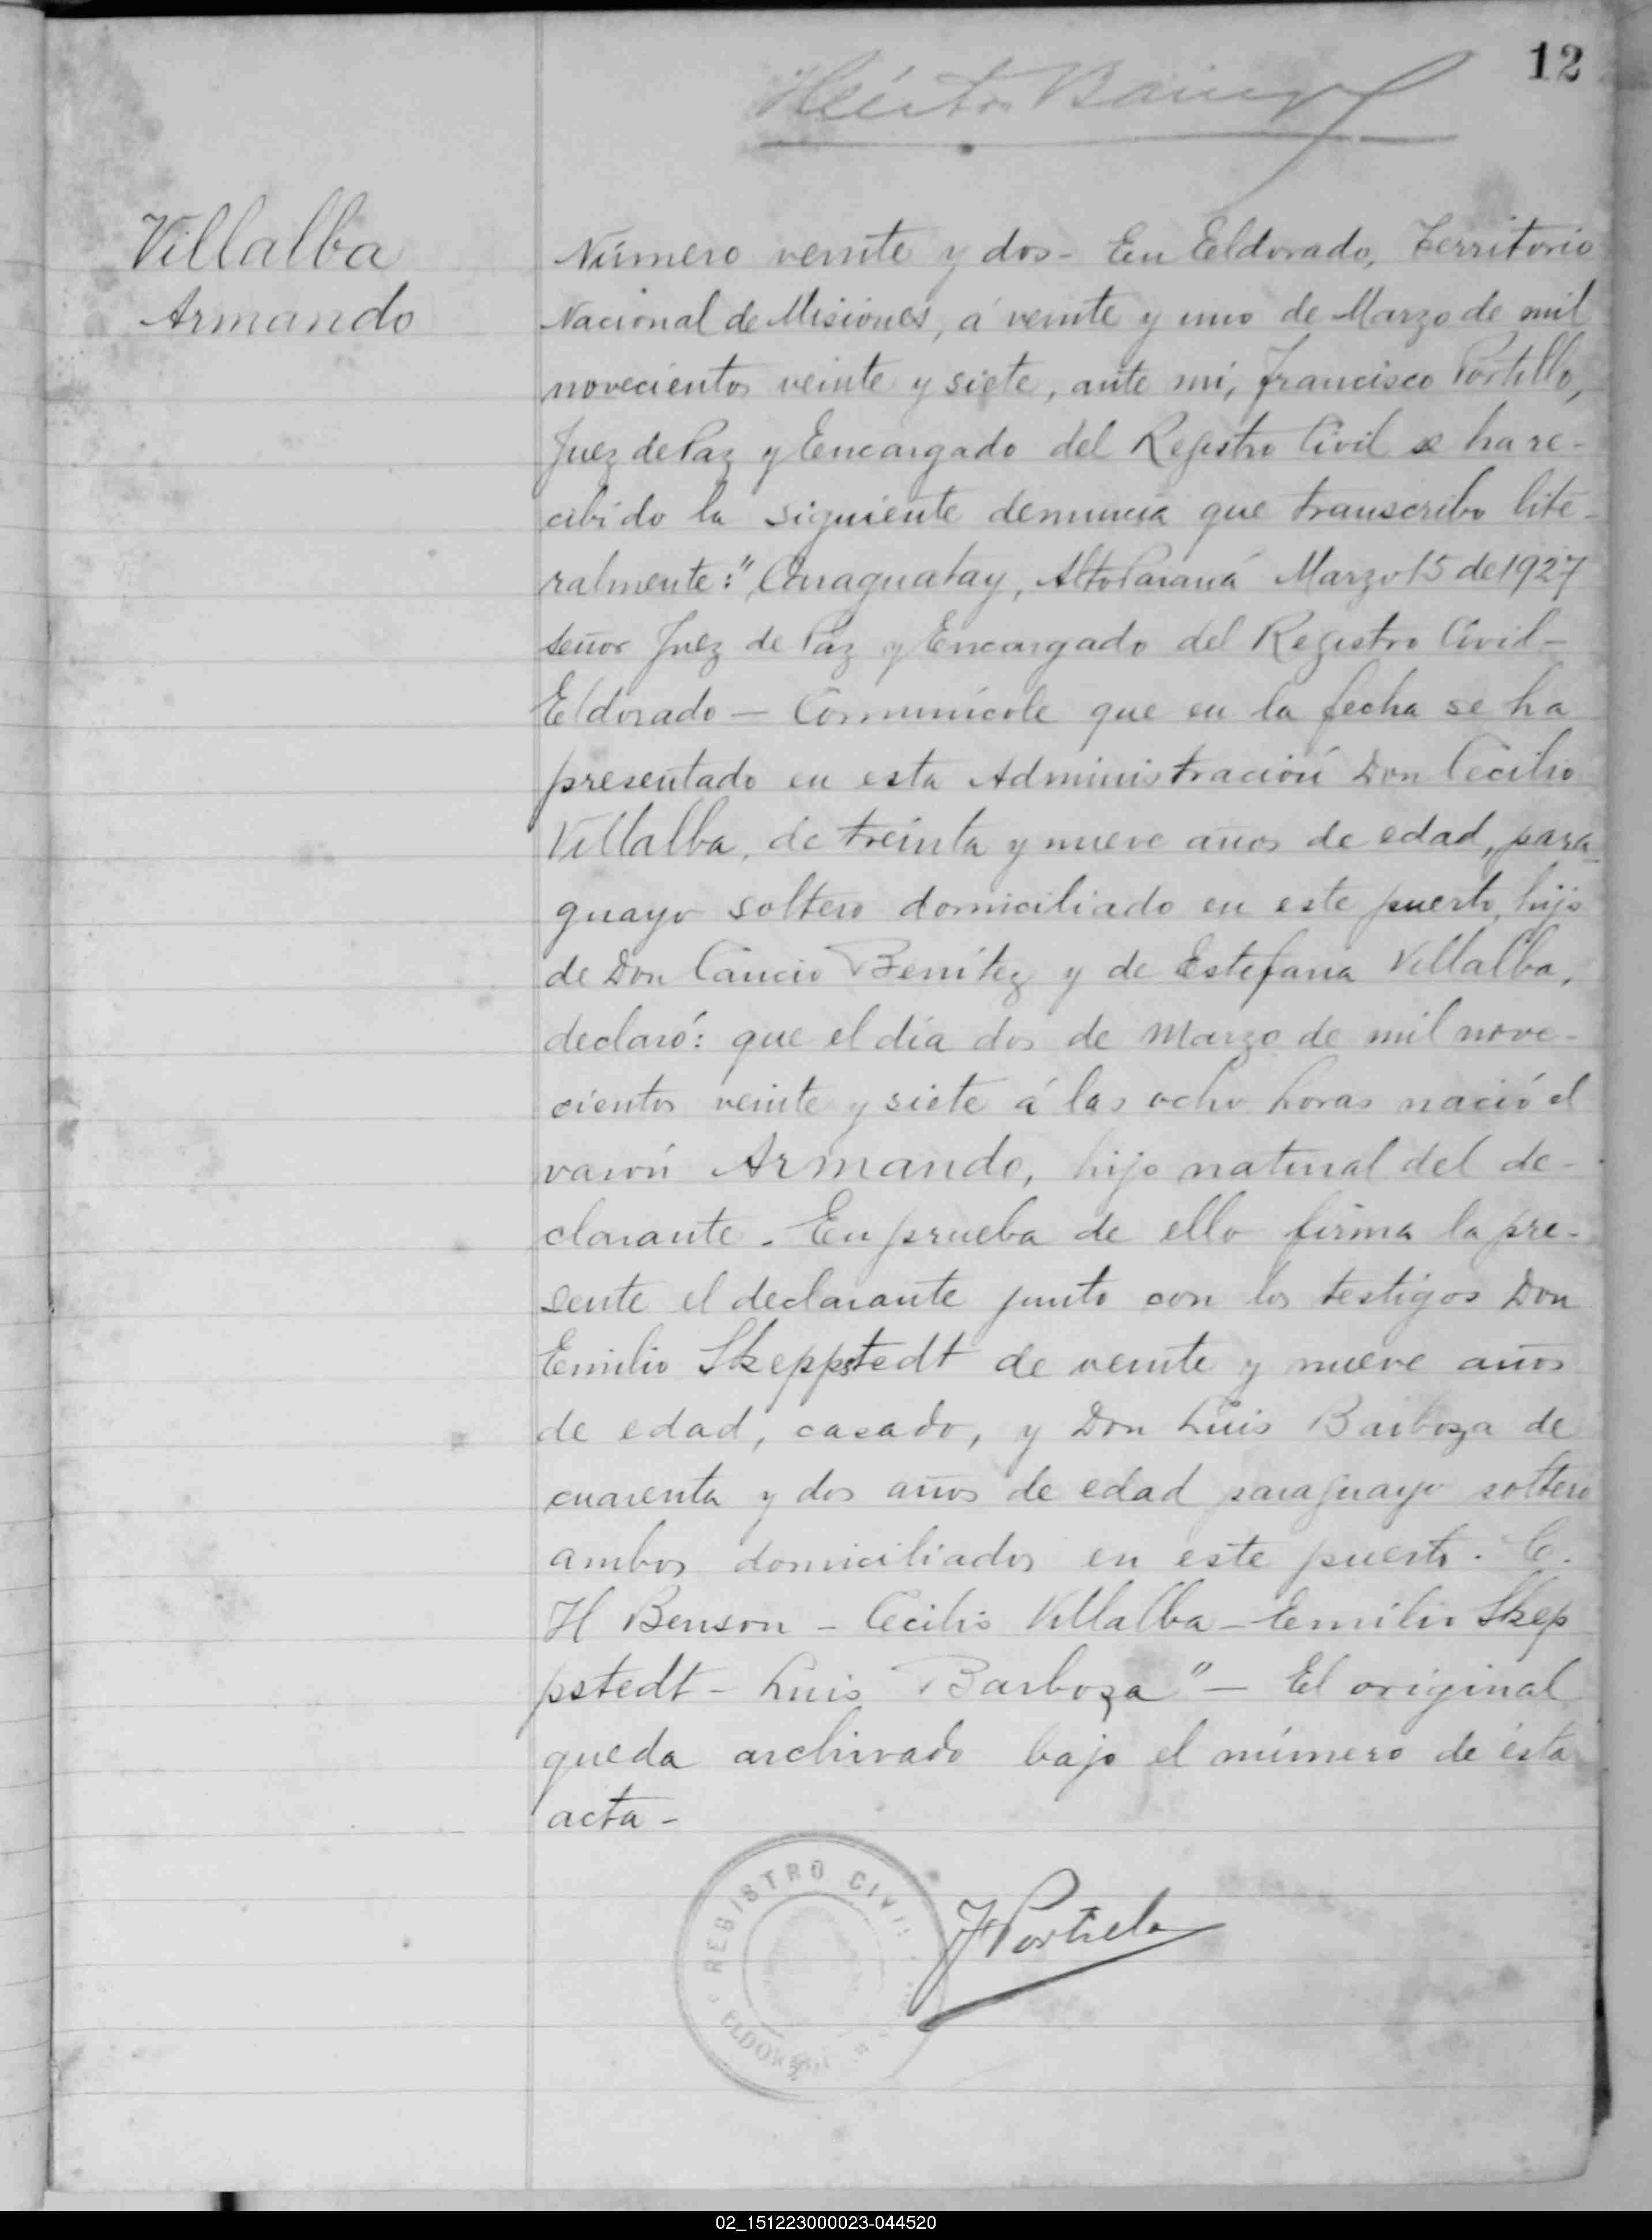 12
Villalba
Armando
Número veinte y dos - En Eldorado, Territorio
Nacional de Misiones, á veinte y uno de Marzo de mil
novecientos veinte y siete, ante mi, Francisco Portillo,
Juez de Paz y Encargado del Registro Civil se ha re-
cibido la siguiente denuncia que transcribo lite-
ralmente: "Caraguatay, Alto Paraná Marzo 15 de 1927
Señor Juez de Paz y Encargado del Registro Civil -
Eldorado - Comunícole que en la fecha se ha
presentado en esta Administración Don Cecilio
Villalba, de treinta y nueve años de edad, para-
guayo soltero domiciliado en este puerto, hijo
de Don Cancio Benítez y de Estefana Villalba,
declaró: que el día dos de Marzo de mil nove-
cientos veinte y siete á las ocho horas nació el
varón Armando, hijo natural del de-
clarante. En prueba de ello firma la pre-
sente el declarante junto con los testigos Don
Emilio Skeppstedt de veinte y nueve años
de edad, casado, y Don Luis Barboza de
cuarenta y dos años de edad paraguayo soltero
ambos domiciliados en este puerto. C.
H Benson - Cecilio Villalba - Emilio Skep
pstedt - Luis Barboza" - El original
queda archivado bajo el número de ésta
acta -
REGISTRO CIVIL
ELDORADO
02_151223000023-044520